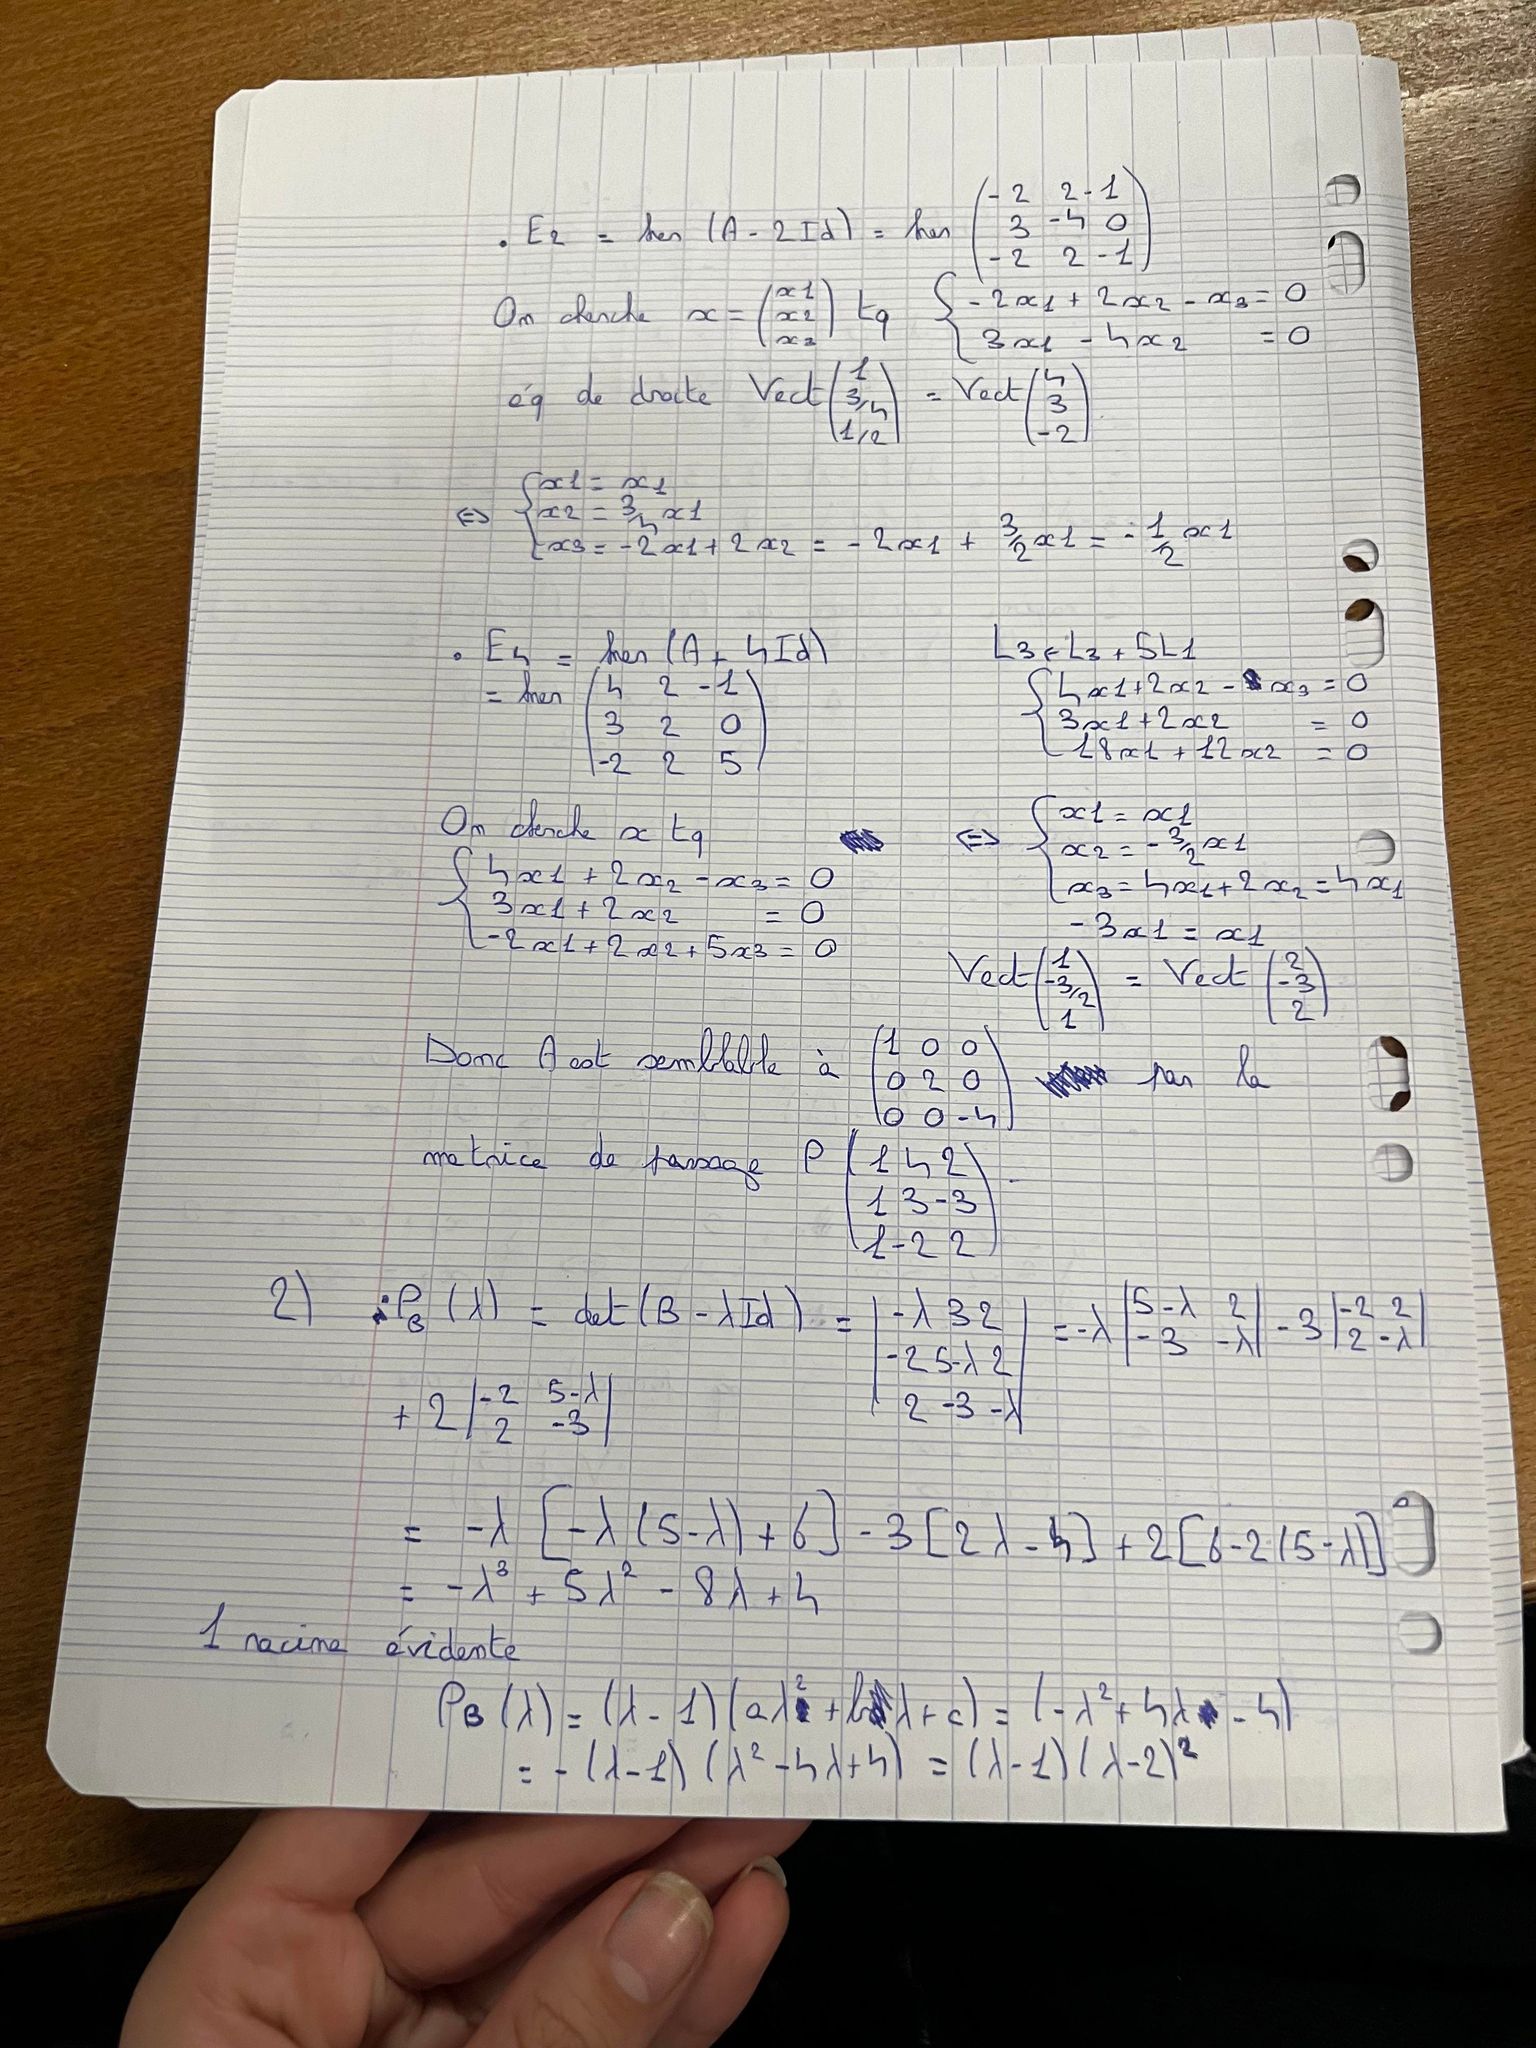 . E2 = ker (A - 2Id) = ker (-2 2 -1
3 -4 0
-2 2 -1)
On cherche x = (x1
x2
x3) tq {-2x1 + 2x2 - x3 = 0
3x1 - 4x2 = 0
éq de droite Vect (1
3/4
1/2) = Vect (4
3
-2)
<=> {x1 = x1
x2 = 3/4 x1
x3 = -2x1 + 2x2 = -2x1 + 3/2 x1 = -1/2 x1
. E4 = ker (A + 4Id)
= ker (4 2 -1
3 2 0
-2 2 5)
On cherche x tq
{4x1 + 2x2 - x3 = 0
3x1 + 2x2 = 0
-2x1 + 2x2 + 5x3 = 0
L3 ← L3 + 5L1
{4x1 + 2x2 - x3 = 0
3x1 + 2x2 = 0
18x1 + 12x2 = 0
<=> {x1 = x1
x2 = -3/2 x1
x3 = 4x1 + 2x2 = 4x1
-3x1 = x1
Vect (1
-3/2
1) = Vect (2
-3
2)
Donc A est semblable à (1 0 0
0 2 0
0 0 -4) par la
matrice de passage P (1 4 2
1 3 -3
1 -2 2).
2) • PB (λ) = det (B - λId) = |-λ 3 2
-2 5-λ 2
2 -3 -λ| = -λ |5-λ 2
-3 -λ| - 3 |-2 2
2 -λ|
+ 2 |-2 5-λ
2 -3|
= -λ [-λ (5-λ) + 6] - 3 [2λ - 4] + 2 [6 - 2 (5-λ)]
= -λ³ + 5λ² - 8λ + 4
1 racine évidente
PB (λ) = (λ - 1) (aλ² + bλ + c) = (-λ² + 4λ - 4)
= - (λ-1) (λ² - 4λ + 4) = (λ-1) (λ-2)²